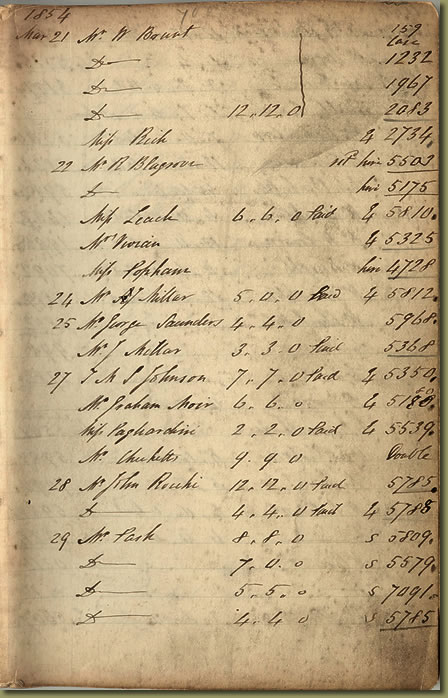 1854
Mar 21 Mr W Bount 159
Case
Do 1232
Do 1967
Do 12.. 12.. 0 2083
Miss Rich 4 2734
22 Mr R Blagrove hire 5503
Do hire 5175
Miss Leach 6.. 6.. 0 Paid 4 5810
Mrs Vivian 4 5325
Miss Popham hire 4728
24 Mr AJ Millar 5.. 0.. 0 Paid 4 5812
25 Mr George Saunders 4.. 4.. 0 5968
Mr J Millar 3.. 3.. 0 Paid 5368
27 T M S Johnson 7.. 7.. 0 Paid 4 5350
Mr Graham Moir 6.. 6.. 0 4
Miss Pagliardini 2.. 2.. 0 Paid 4 5539
Mr 9.. 9.. 0 Double
28 Mr John Rocchi 12.. 12.. 0 Paid 5785
Do 4.. 4.. 0 Paid 4 5788
29 Mr Pask 8.. 8.. 0 s 5809
Do 7.. 0.. 0 s 5579
Do 5.. 5.. 0 s 7091
Do 4.. 4.. 0 s 5785